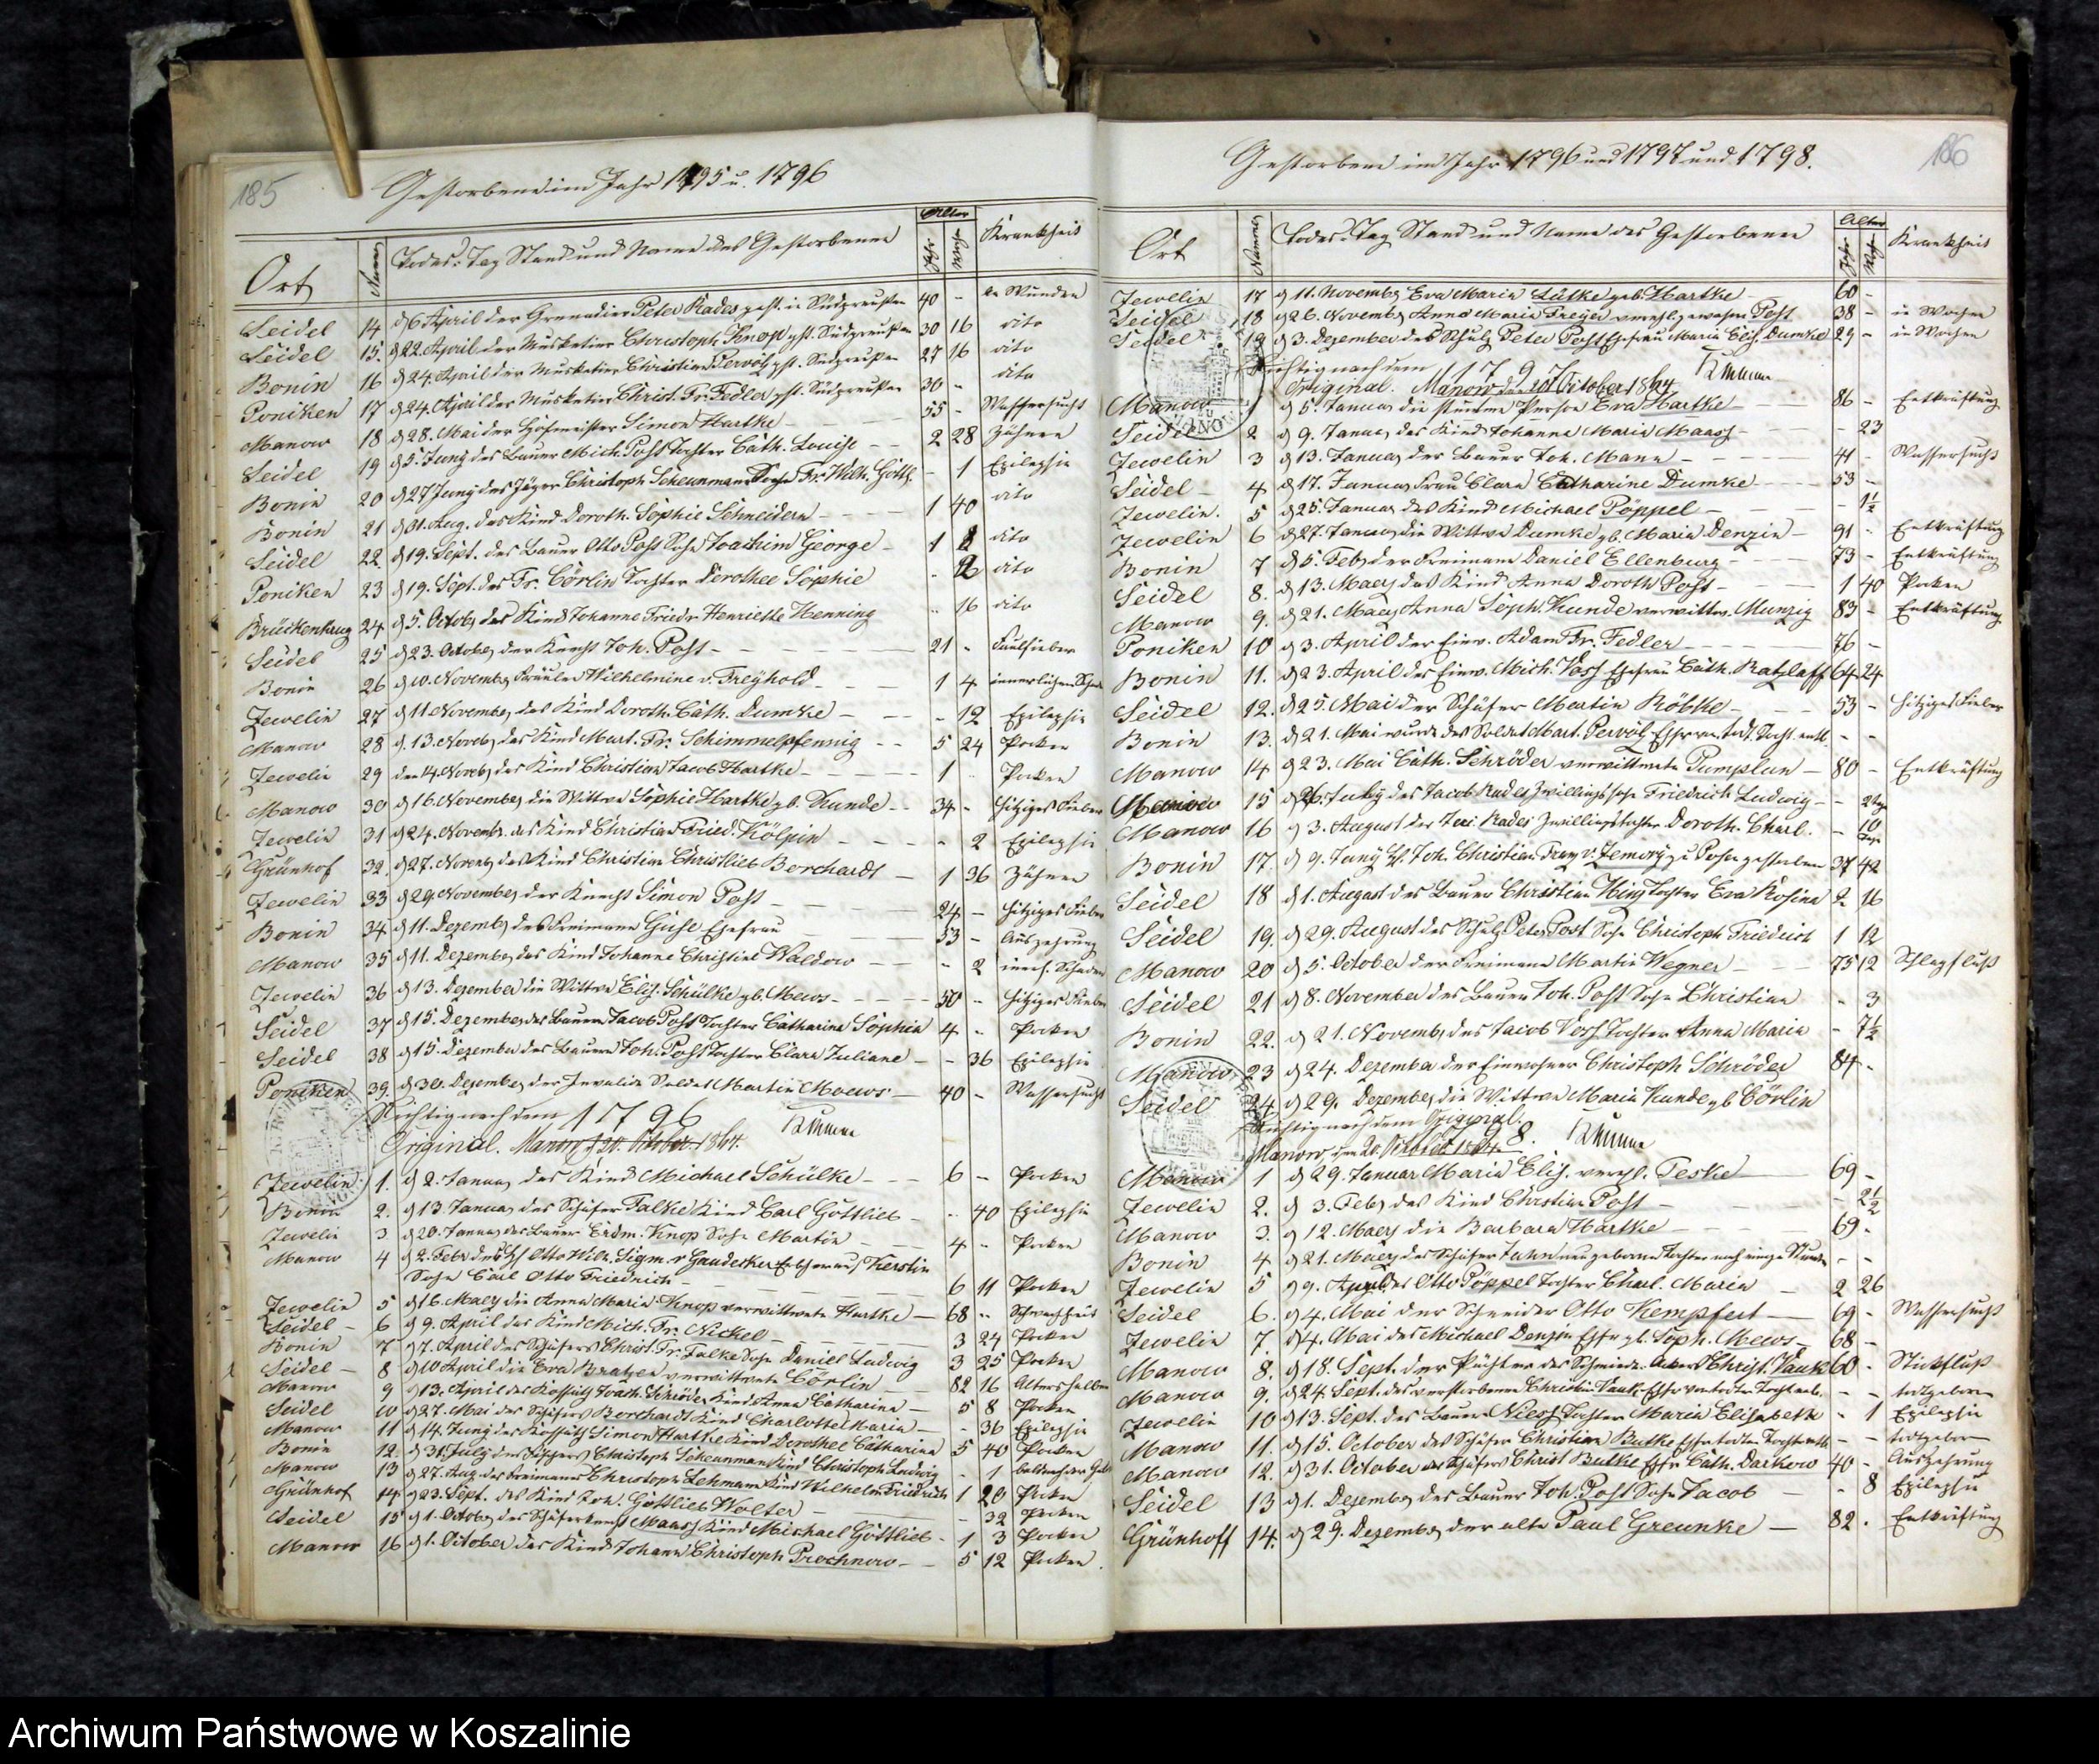 185
Gestorbene im Jahr 1795 u. 1796
Ort Nummer Todes-Tag Stand und Name des Gestorbenen Alter Jahr Woche Krankheit
Seidel 14 d 6 April der Grenadier Peter Rades gest. in Südpreußen 40 - an Wunden
Seidel 15. d 22. April der Musketier Christoph Knop gst. Südpreußen 30 16 dito
Bonin 16 d 24. April der Musketier Christian Pervölz gst. Südpreußen 27 16 dito
Poniken 17 d 24. April der Musketier Christ. Fr. Fedler gst. Südpreußen 30 - dito
Manow 18 d 28. Mai der Hofmeister Simon Hartke 55 - Wassersucht
Seidel 19 d 5. Juny des Bauer Mich. Post Tochter Cath. Louise 2 28 Zähnen
Bonin 20 d 27 Juny des Jäger Christoph Scheunmann Sohn Fr. Wilh. Gottl. - 1 Epilepsie
Bonin 21 d 31. Aug. das Kind Doroth. Sophie Schneidern 1 40 dito
Seidel 22. d 19. Sept. des Bauer Otto Post Sohn Joachim George 1 8 dito
Poniken 23 d 19. Sept. des Fr. Cörlin Tochter Dorothee Sophie - 2 dito
Brückenkrug 24 d 5. Octob. das Kind Johanne Friedr. Henriette Henning - 16 dito
Seidel 25 d 23. October der Knecht Joh. Post 21 - Faulfieber
Bonin 26 d 10. Novemb. Fräulen Wilhelmine v. Freyhold 1 4 innerlichen Schad
Zewelin 27 d 11 November das Kind Doroth. Cath. Dumke - 12 Epilepsie
Manow 28 d. 13. Novb. das Kind Mart. Fr. Schimmelpfennig 5 24 Pocken
Zewelin 29 den 14. Novb. das Kind Christian Jacob Hartke 1 - Pocken
Manow 30 d 16. November die Wittwe Sophie Hartke gb. Kunde 34 - hitziges Fieber
Zewelin 31 d 24. Novemb. das Kind Christian Fried. Kölpin - 2 Epilepsie
Grünhof 32. d 27. Novemb. das Kind Christian Christlieb Borchardt 1 36 Zähnen
Zewelin 33 d 29. November der Knecht Simon Post 24 - hitziges Fieber
Bonin 34 d 11. Dezemb. des Freimann Guse Ehefrau 53 - Auszehrung
Manow 35 d 11. Dezember das Kind Johanne Christine Waldow - 2 innerl. Schaden
Zewelin 36 d 13. Dezember die Wittwe Elis. Schülke gb. Mews 50 - hitziges Fieber
Seidel 37 d 15. Dezember des Bauern Jacob Post Tochter Catharine Sophia 4 - Pocken
Seidel 38 d 15. Dezember des Bauern Joh. Post Tochter Clara Juliane - 36 Epilepsie
Poniken 39. d 30. Dezember der Invalide Soldat Martin Moews 40 - Wassersucht
Richtig nach dem 1796
Original. Manow d 20. October 1864.
Zewelin 1. d 2. Januar das Kind Michael Schülke 6 - Pocken
Bonin 2. d 13. Januar des Schäfer Falke Kind Carl Gottlieb - 40 Epilepsie
Zewelin 3 d 20. Januar des Bauer Erdm. Knop Sohn Martin 4 - Pocken
Manow 4 d 2. Febr. des Otto Wilh. Sigm. v Gaudecker Erbherr auf Kerstin
Sohn Carl Otto Friedrich 6 11 Pocken
Zewelin 5 d 16. Maerz die Anna Maria Knop verwittwete Hartke 68 - Schwachheit
Seidel 6 d 9. April das Kind Mich. Fr. Nickel 3 24 Pocken
Bonin 7 d 7. April des Schäfers Christ. Fr. Falke Sohn Daniel Ludwig 3 25 Pocken
Seidel 8 d 10 April die Eva Bratzen verwittwete Cörlin 82 16 Altershalber
Manow 9 d 13. April des Kossäth Joach. Schröder Kind Anna Catharina 5 8 Pocken
Seidel 10 d 27. Mai des Schäfers Borchardt Kind Charlotte Maria - 36 Epilepsie
Manow 11 d 14. Juny des Kossäth Simon Hartke Kind Dorothee Catharina 5 40 Pocken
Bonin 12. d 31 July des Jägers Christoph Scheunmann Kind Christoph Ludwig - 1 bald nach der Geb.
Manow 13 d 27. Aug. des Freimanns Christoph Lehmann Kind Wilhelm Friedrich 1 20 Pocken
Grünhof 14. d 23. Sept. das Kind Joh. Gottlieb Wolter - 32 Pocken
Seidel 15 d 1. October des Schäferknecht Maass Kind Michael Gottlieb 1 3 Pocken
Manow 16 d 1. October das Kind Johann Christoph Prochnow 5 12 Pocken
186
Gestorbene im Jahr 1796 und 1797 und 1798.
Ort Nummer Todes-Tag Stand und Name des Gestorbenen Alter Jahr Woch. Krankheit
Zewelin 17 d 11. Novemb. Eva Maria Lütke geb. Hartke 60 -
Seidel 18 d 26. Novemb. Anna Maria Freyer verehl. gewesene Post 38 - in Wochen
Seidel 19 d 3. Dezember des Schulz Peter Post Ehefrau Maria Elis. Dumke 29 - in Wochen
Richtig nach dem 1797
Original. Manow den 20. October 1864
Manow 1 d 5. Januar die stumme Person Eva Hartke 86 - Entkräftung
Seidel 2 d 9. Januar das Kind Johanna Maria Maass - 23
Zewelin 3 d 13. Januar der Bauer Joh. Mann 41 - Wassersucht
Seidel 4 d 17. Januar Frau Clara Catharine Dumke 53 -
Zewelin. 5 d 25. Januar das Kind Michael Pöppel - 1½
Zewelin 6 d 27. Januar die Wittwe Dumke gb. Maria Denzin 91 - Entkräftung
Bonin 7 d 5. Feb. der Freimann Daniel Ellenburg 73 - Entkräftung
Seidel 8. d 13. Maerz das Kind Anna Doroth Post 1 40 Pocken
Manow 9. d 21. Maerz Anna Soph. Kunde verwittw. Munzig 83 - Entkräftung
Poniken 10 d 3. April der Einw. Adam Fr. Fedler 76 -
Bonin 11. d 23. April des Einw. Mich. Voss Ehefrau Cath. Ratzlaff 64 24
Seidel 12. d 25. Mai der Schäfer Martin Röbke 53 - hitziges Fieber
Bonin 13. d 21. Mai wurde des Soldat Mart. Pervölz Ehefrau todt. Tocht. entb. - -
Manow 14 d 23. Mai Cath. Schröder verwittwete Pumplun 80 - Entkräftung
Manow 15 d 26. July des Jacob Rades Zwillingssohn Friedrich Ludwig - 2 Tage
Manow 16 d 3. August des Jac. Rades Zwillingstochter Doroth. Charl. - 10 Tage
Bonin 17. d 9. Juny H. Joh. Christian Franz v. Zemorz zu Posen gestorben 37 42
Seidel 18 d 1. August des Bauer Christian Tochter Eva Rosina 2 16
Seidel 19. d 29. August des Schulz Peter Post Sohn Christoph Friedrich 1 12
Manow 20 d 5. October der Freimann Martin Wegner 75 12 Schlagfluß
Seidel 21 d 8. November des Bauer Joh. Post Sohn Christian - 3
Bonin 22. d 21. Novemb. des Jacob Voss Tochter Anna Maria - 7½
Manow 23 d 24. Dezember der Einwohner Christoph Schröder 84 -
Seidel 24. d 29. Dezember die Wittwe Maria Kunde gb Cörlin
Richtig nach dem Original.
Manow, den 20. October 1864. 8.
Manow 1 d 29. Januar Maria Elis. verehl. Teske 69 -
Zewelin 2. d 3. Feb. das Kind Christian Post - 2½
Manow 3. d 12. Maerz die Barbara Hartke 69 -
Bonin 4 d 21. Maerz des Schäfer Jahn neugeborne Tochter nach einige Stunden - -
Zewelin 5 d 9. April des Otto Pöppel Tochter Charl. Maria 2 26
Seidel 6. d 4. Mai der Schneider Otto Kempfert 69 - Wassersucht
Zewelin 7. d 4. Mai des Michael Denzin Ehfr. gb. Soph. Mews 68 -
Manow 8. d 18. Sept. der Pächter des Schmiede-Ackers Christ. Vauk 60 - Stickfluß
Manow 9. d 24. Sept. des verstorbenen Christian Vauk Ehfr. von todter Tocht. entb. - - todtgeboren
Zewelin 10 d 13. Sept. des Bauer Niess Tochter Maria Elisabeth - 1 Epilepsie
Manow 11. d 15. October des Schäfer Christian Butke Ehfr. todte Tochter entb. - - todtgeboren
Manow 12. d 31. October des Schäfers Christ Butke Ehfr. Cath. Darkow 40 - Auszehrung
Seidel 13 d 1. Dezember des Bauer Joh. Post Sohn Jacob - 8 Epilepsie
Grünhoff 14. d 29. Dezemb. der alte Paul Greunke 82 . Entkräftung
Archiwum Państwowe w Koszalinie